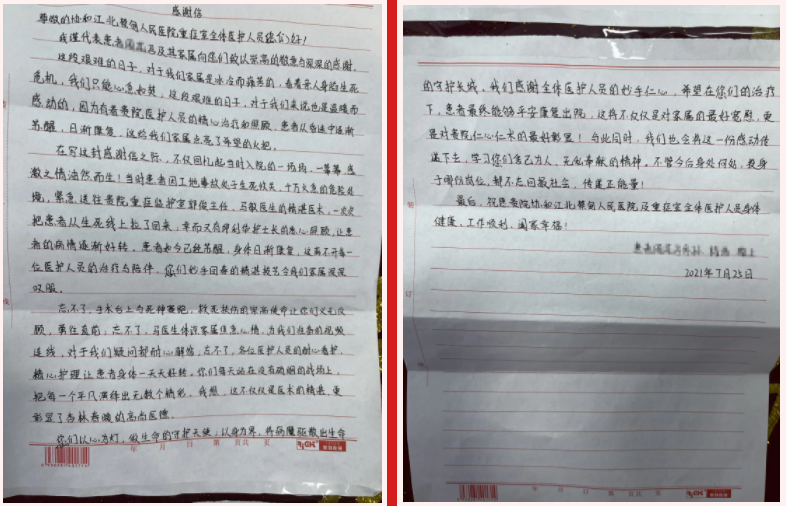 感谢信
尊敬的协和江北帮甸人民医院重症室全体医护人员您们好!
我谨代表患者及其家属向您们致以崇高的敬意与深深的感谢。
这段艰难的日子,对于我们家属是冰冷而痛苦的,看着亲人身陷生死
危机,我们只能心急如焚,这段艰难的日子,对于我们来说也是温暖而
感动的,因为有着贵院医护人员的精心治疗和照顾,患者从昏迷中逐渐
苏醒,日渐康复,这给我们家属点亮了希望的火把。
在写这封感谢信之际,不仅回忆起当时入院的一场场,一幕幕,感
激之情油然而生!当时患者因工地事故处于生死攸关,十万火急的危险处
境,紧急送往贵院重症监护室郭俊主任,马敏医生的精湛医术,一次次
把患者从生死线上拉了回来,幸而又有护士长的悉心照顾,让患
者的病情逐渐好转,患者如今已经苏醒,身体日渐康复,这离不开每一
位医护人员的治疗与陪伴,您们妙手回春的精湛技艺令我们家属深深
叹服。
忘不了,手术台上与死神赛跑,救死扶伤的崇高使命让你们义无反
顾,勇往直前,忘不了,马医生体谅家属焦急心情,为我们任劳的视频
连线,对于我们疑问都耐心解答,忘不了,各位医护人员的耐心看护,
精心护理让患者身体一天天好转。你们每天站在没有硝烟的战场上,
把每一个平凡演绎出无数个精彩,我想,这不仅仅是医术的精湛,更
彰显了杏林春暖的高尚医德。
你们以心为灯,做生命的守护天使;以身为界,将病魔驱散出生命
年 月 日 第 页共 页
的守护长城,我们感谢全体医护人员的妙手仁心,希望在你们的治疗
下,患者最终能够平安康复出院,这将不仅仅是对家属的最好宽慰,更
是对贵院仁心仁术的最好彰显!与此同时,我们也会将这一份感动传
递下去,学习你们舍己为人,无私奉献的精神。不管今后身处何处,投身
于哪份岗位,都不忘回报社会,传递正能量!
最后,祝愿贵院协和江北帮甸人民医院及重症室全体医护人员身体
健康,工作顺利,阖家幸福!
敬上
2021年7月25日
年 月 日 第 页共 页